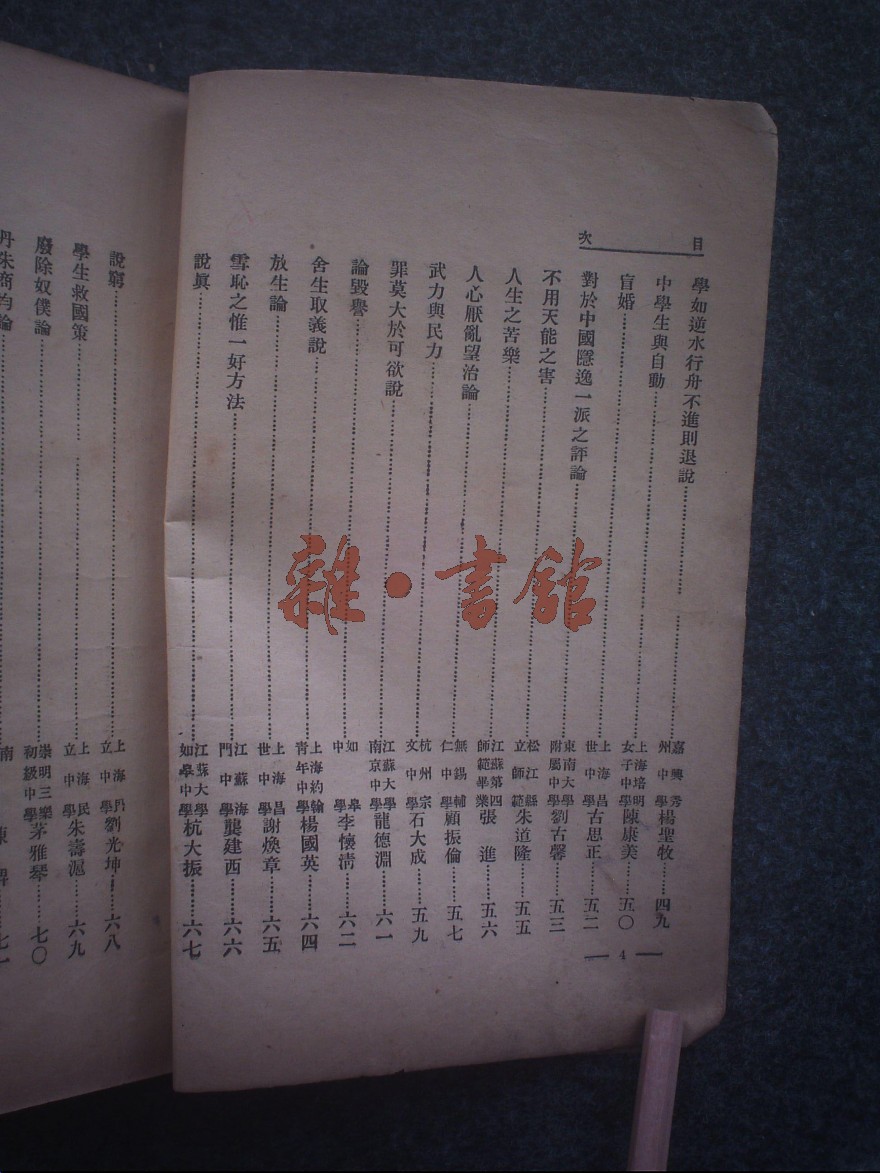 目次
學如逆水行舟不進則退說……嘉興秀州中學楊聖牧……四九
中學生與自動……上海培明女子中學陳康美……五〇
盲婚……上海昌世中學古思正……五二
對於中國隱逸一派之評論……東南大學附屬中學劉古馨……五三
不用天能之害……松江縣立師範朱道隆……五五
人生之苦樂……江蘇第四師範畢業張進……五六
人心厭亂望治論……無錫輔仁中學顧振倫……五七
武力與民力……杭州宗文中學石大成……五九
罪莫大於可欲說……江蘇大學南京中學龍德淵……六一
論毀譽……如皋中學李懷清……六二
舍生取義說……上海約翰青年中學楊國英……六四
放生論……上海昌世中學謝煥章……六五
雪恥之惟一好方法……江蘇海門中學龔建西……六六
說眞……江蘇大學如皋中學杭大振……六七
4
說窮……上海丹立中學劉光坤……六八
學生救國策……上海民立中學朱壽滬……六九
廢除奴僕論……崇明三樂初級中學茅雅琴……七〇
丹朱商均論……南
雜·書館